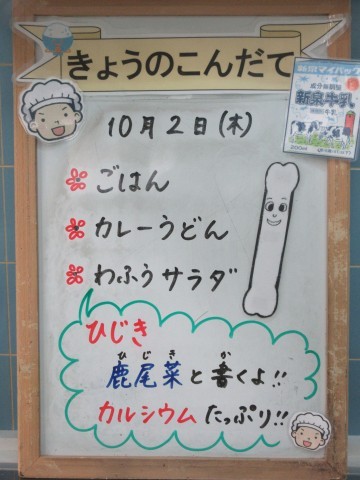 きょうのこんだて
新泉牛乳
10月2日(木)
ごはん
カレーうどん
わふうサラダ
ひじき
ひじき か
鹿尾菜と書くよ!!
カルシウムたっぷり!!